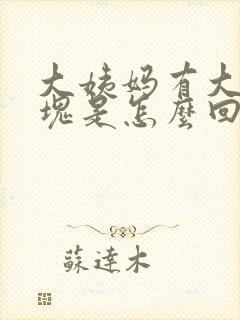 大姨妈有大
块是怎麼回
蘇達木